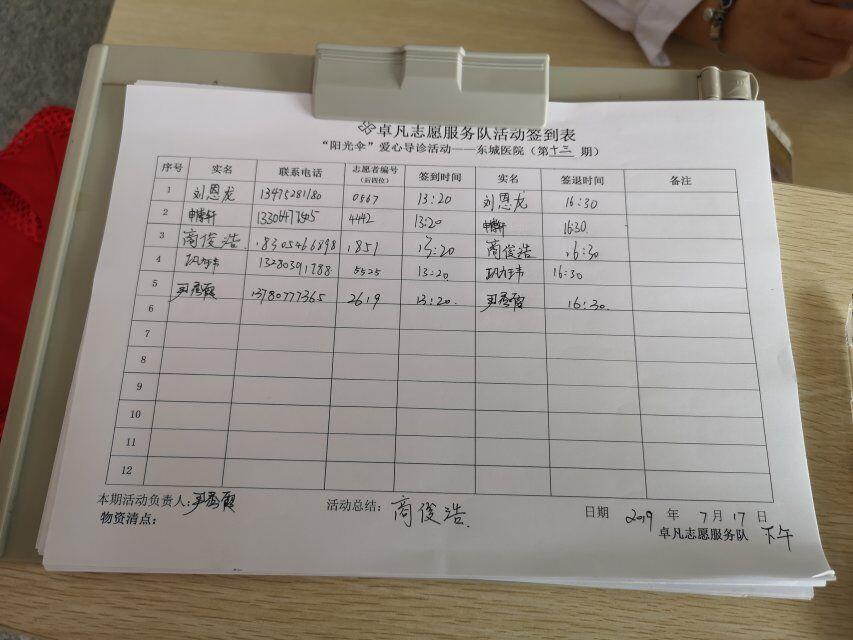 卓凡志愿服务队活动签到表
“阳光伞”爱心导诊活动——东城医院（第十三期）
序号 实名 联系电话 志愿者编号（后四位） 签到时间 实名 签退时间 备注
1 刘恩龙 13475281180 0567 13:20 刘恩龙 16:30
2 4442 13:20 16:30
3 商俊浩 18305466898 1851 13:20 商俊浩 16:30
4 13280391788 5525 13:20 16:30
5 13780777365 2619 13:20. 16:30.
6
7
8
9
10
11
12
本期活动负责人: 活动总结: 商俊浩. 日期 2019 年 7 月 17 日
物资清点: 卓凡志愿服务队 下午